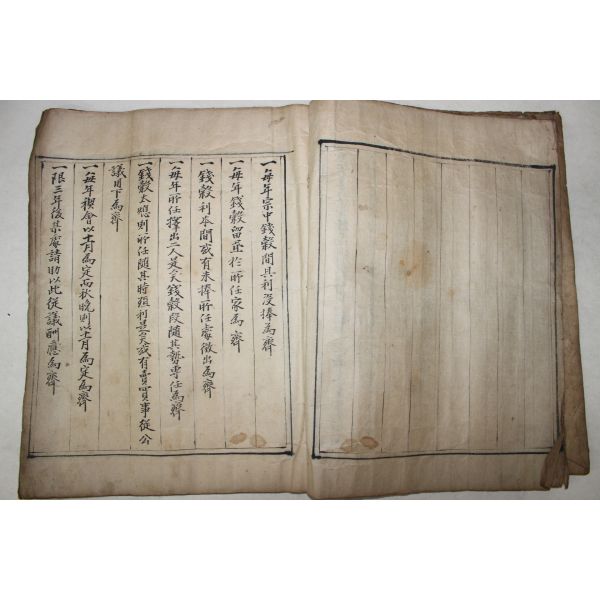 一每年宗中錢穀間具利沒捧爲齊
一每年錢穀留置於所任家爲齊
一錢穀利本間或有未捧所任處徵出爲齊
一每年所任擇出二人是矣錢穀段隨其勢專任爲齊
一錢穀太惣則所任隨其時殖利是矣或有賣買事從公
議用下爲齊
一每年稧會以十月爲定而秋晚則以十一月爲定爲齊
一限三年後某處請助以此從議酬應爲齊